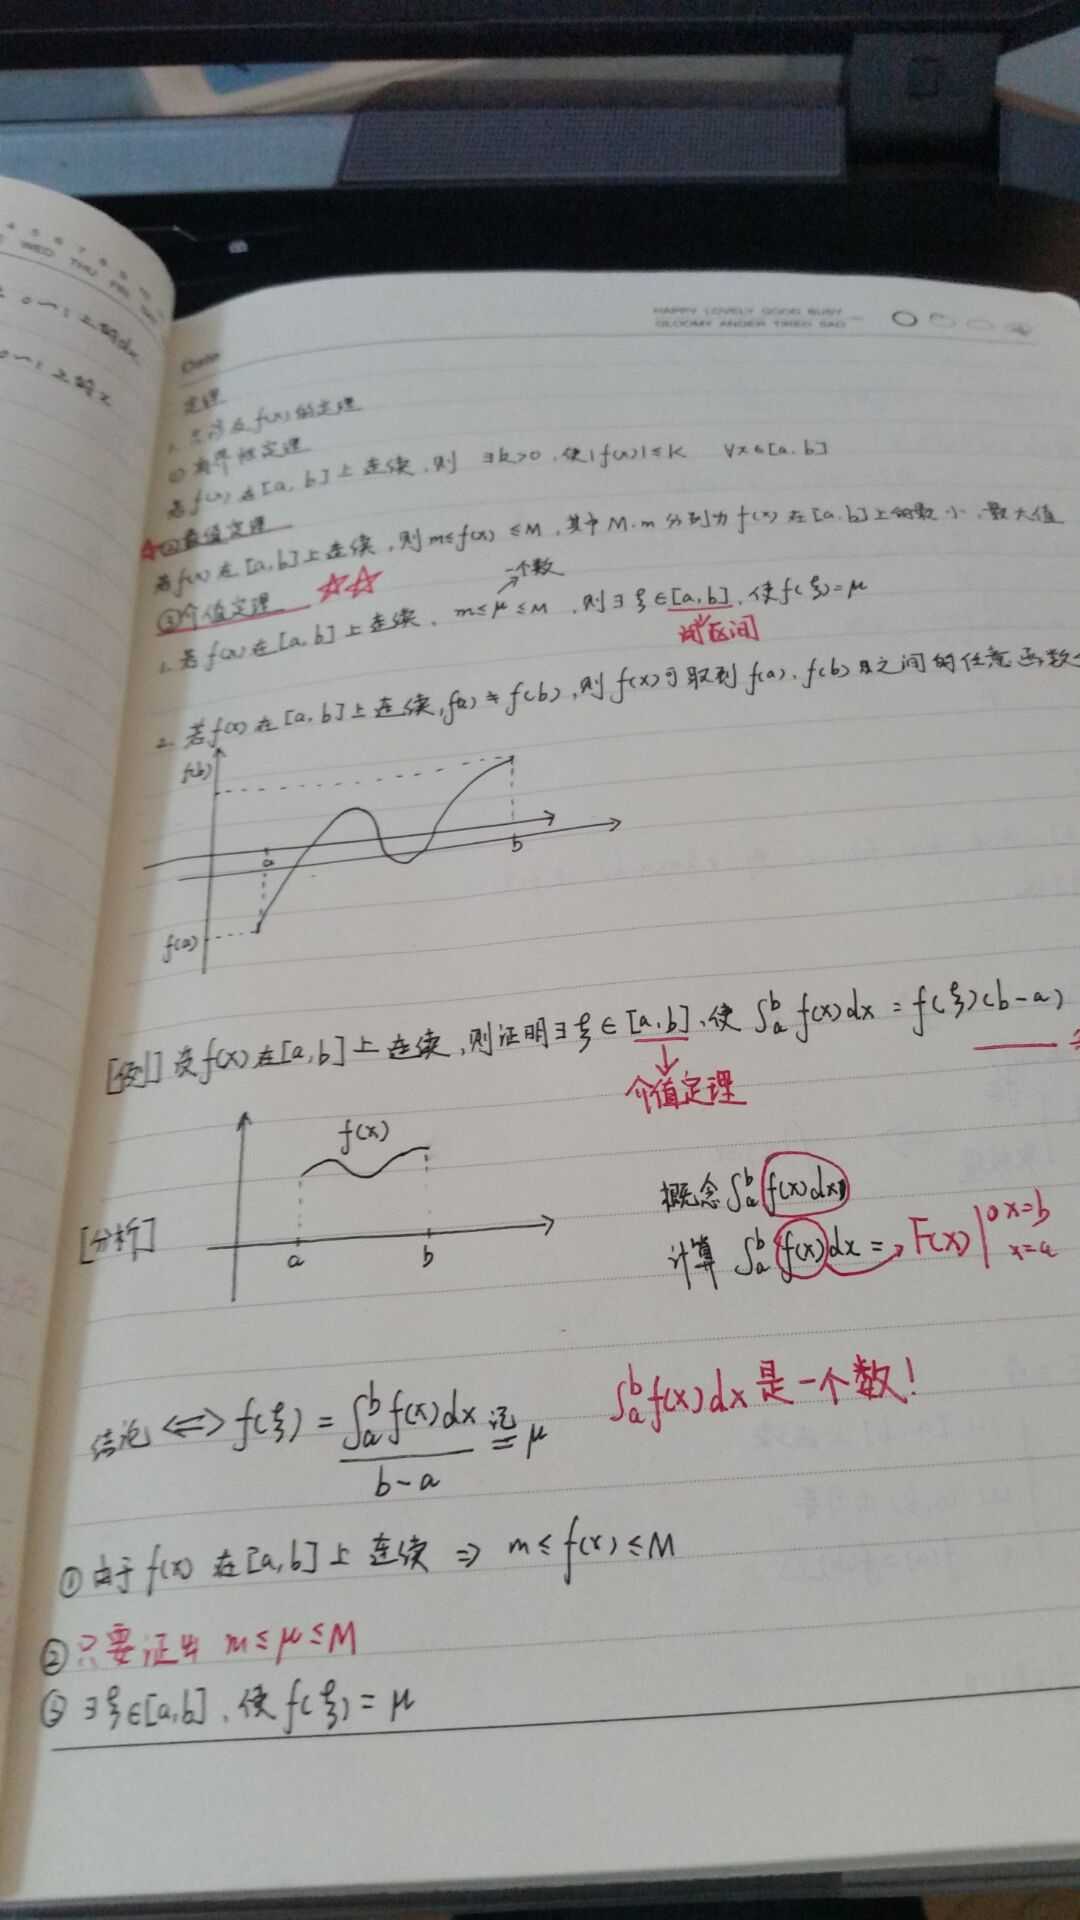 4 5 6 7 8 9 10
WED THU FRI SAT
HAPPY LOVELY GOOD BUSY
GLOOMY ANGER TIRED SAD
Date
定理
1. 涉及f(x)的定理
① 有界性定理
若f(x)在[a,b]上连续,则 ∃k>0,使|f(x)|≤K ∀x∈[a,b]
②最值定理
若f(x)在[a,b]上连续,则m≤f(x)≤M,其中M.m分别为f(x)在[a.b]上的最小、最大值
③介值定理
一个数
1. 若f(x)在[a,b]上连续, m≤μ≤M,则∃ξ∈[a,b],使f(ξ)=μ
闭区间
2. 若f(x)在[a,b]上连续,f(a)≠f(b),则f(x)可取到f(a).f(b)之间的任意函数
f(b)
a
b
f(a)
[例] 设f(x)在[a,b]上连续,则证明∃ξ∈[a.b],使∫ₐᵇf(x)dx=f(ξ)(b-a)
介值定理
f(x)
[分析]
a
b
概念∫ₐᵇf(x)dx
计算 ∫ₐᵇf(x)dx = F(x)|x=b x=a
∫ₐᵇf(x)dx是一个数!
结论⟺f(ξ)=∫ₐᵇf(x)dx/b-a 记= μ
①由于f(x)在[a,b]上连续⇒m≤f(x)≤M
②只要证出 m≤μ≤M
③∃ξ∈[a,b],使f(ξ)=μ